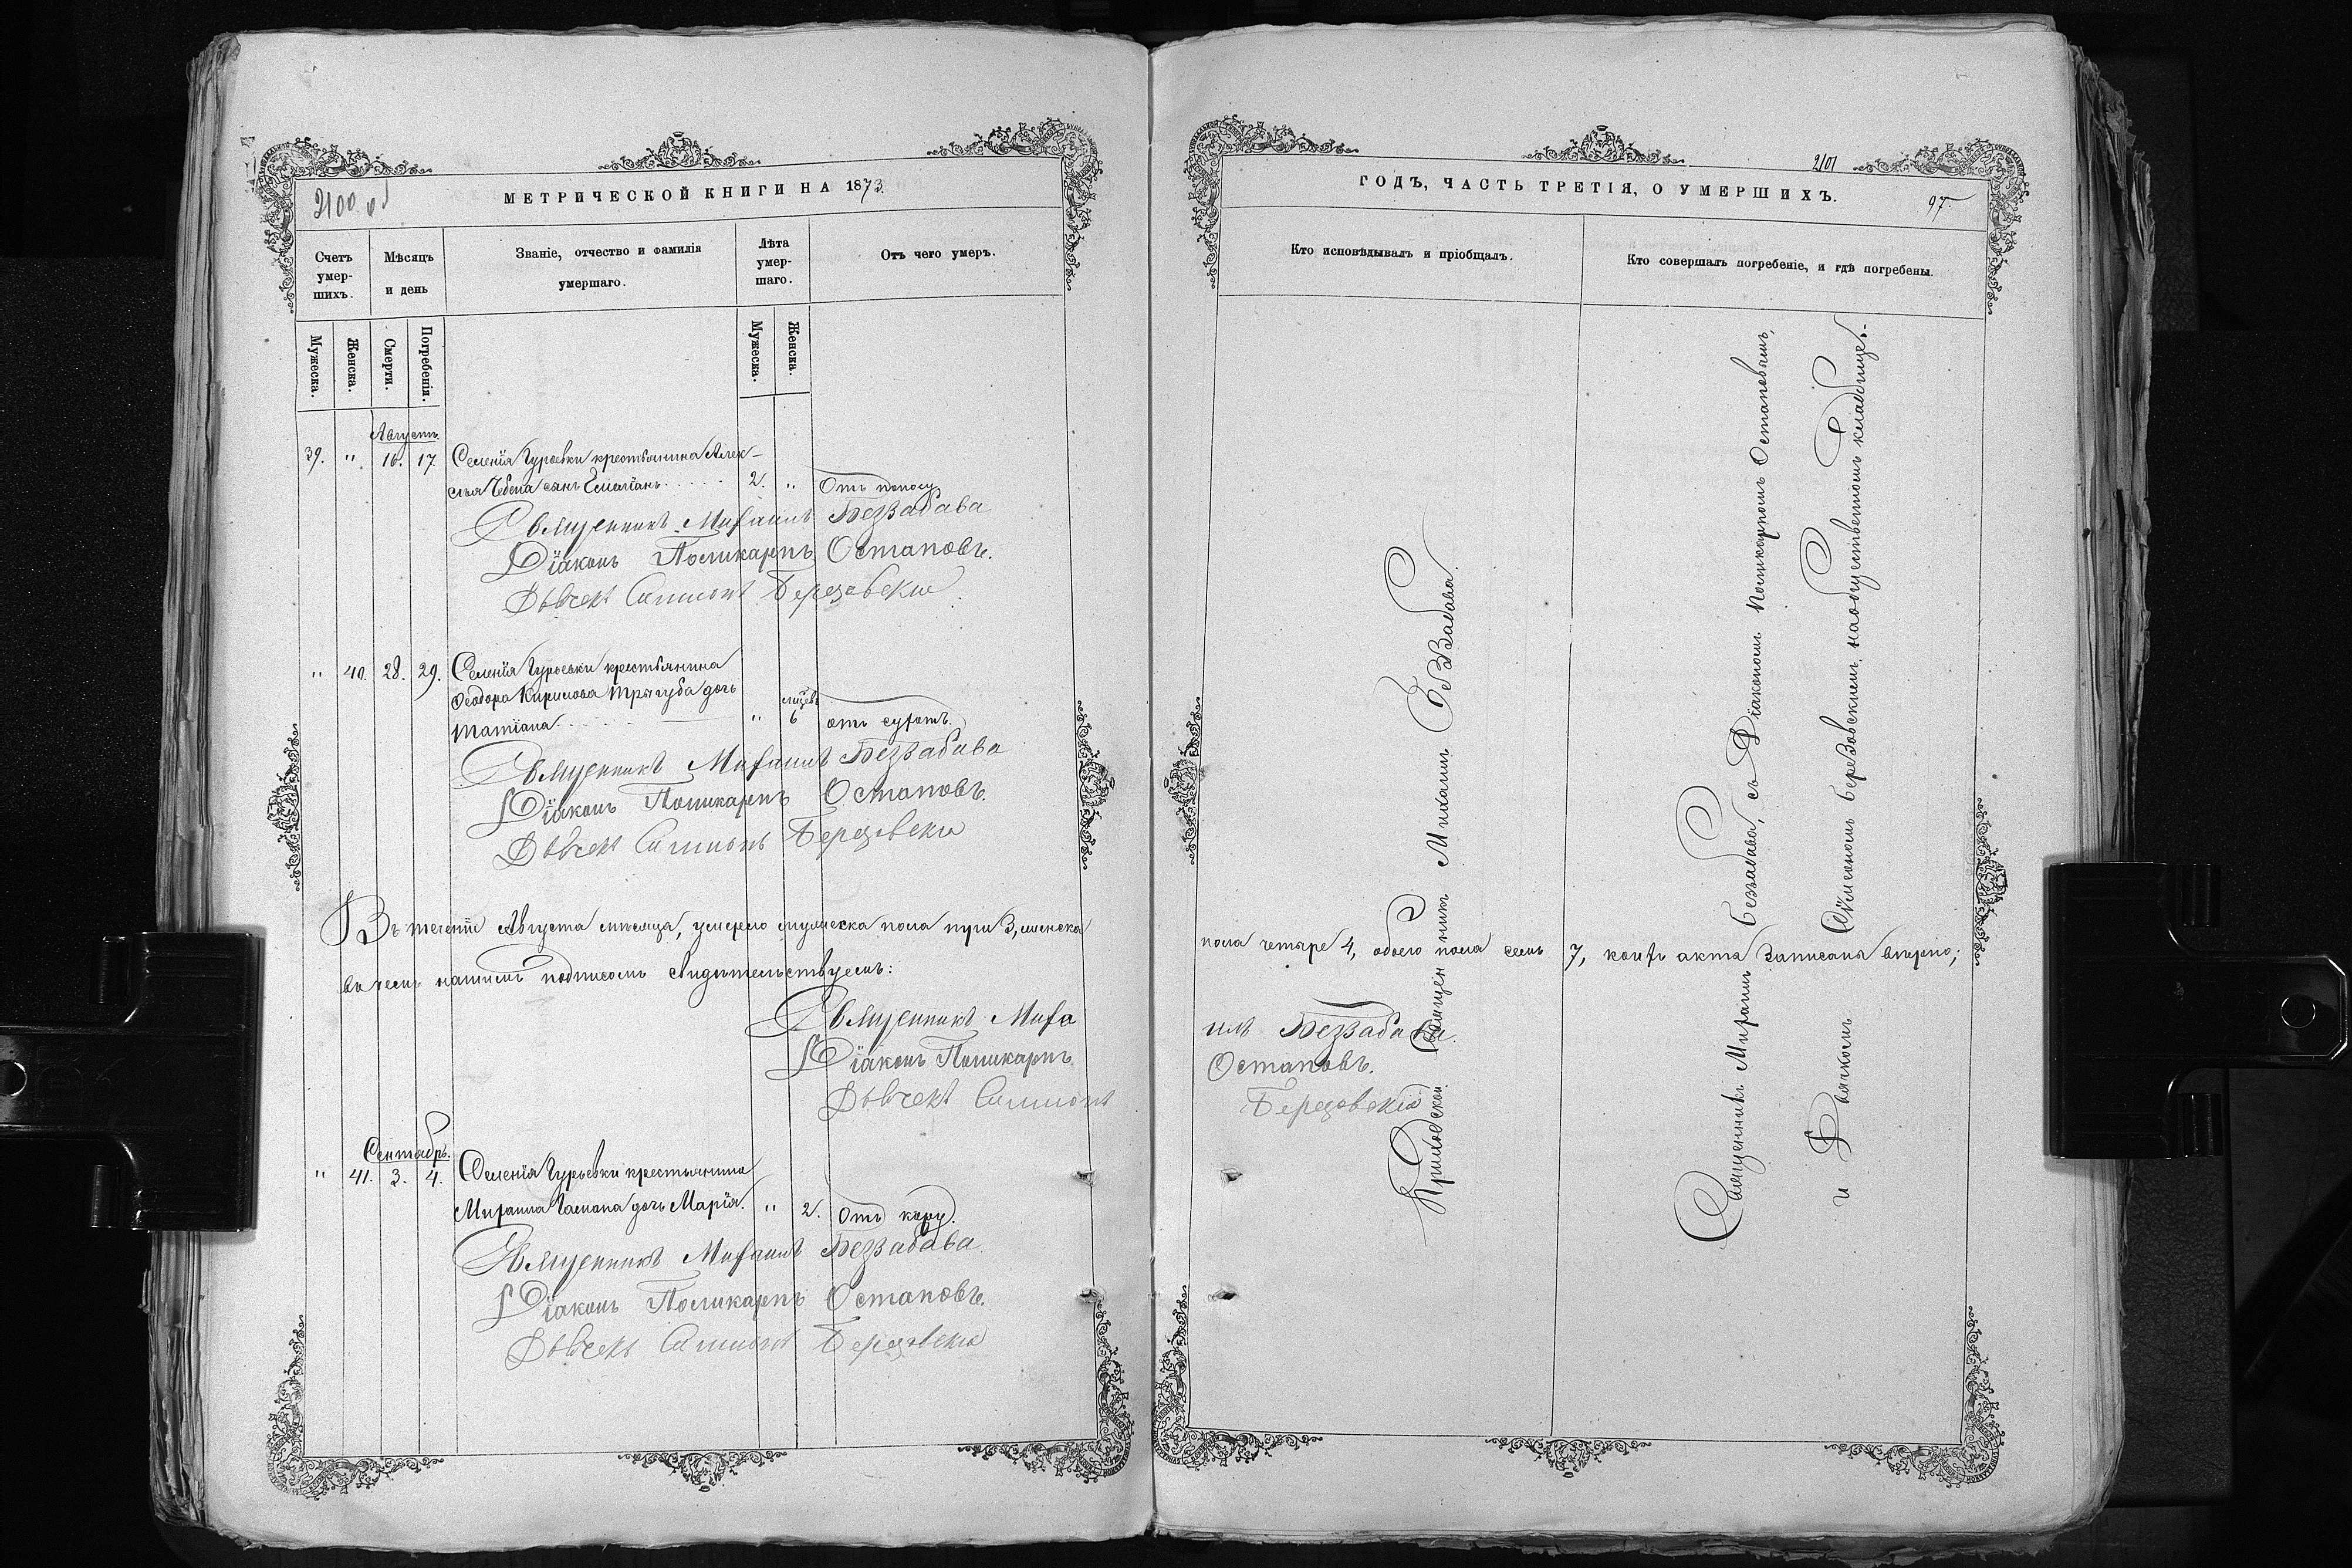 2100 об
МЕТРИЧЕСКОЙ КНИГИ НА 1873
Счетъ умер-шихъ.
Мѣсяцъ и день
Званіе, отчество и фамилія умершаго.
Лѣта умер-шаго.
Отъ чего умеръ.
Мужеска.
Женска.
Смерти.
Погребенія.
Мужеска.
Женска.
Августъ
39. " 16. 17. Селенія Гурьевки крестьянина Алек-
сѣя Чебепа сынъ Емиліанъ 2. " Отъ поносу
Священникъ Михаилъ Беззабава
Діаконъ Поликарпъ Остаповъ.
Дьячекъ Симионъ Березовскій
" 40. 28. 29. Селенія Гурьевки крестьянина
Ѳеодора Кирилова Тригуба дочь
Татіана " мѣсяц. 6 отъ сухотъ.
Священникъ Михаилъ Беззабава
Діаконъ Поликарпъ Остаповъ.
Дьячекъ Симионъ Березовскій
Въ теченіи Августа мѣсяца, умерло мужеска пола три 3, женска
въ чемъ нашимъ подписомъ свидѣтельствуемъ:
Священникъ Миха
Діаконъ Поликарпъ
Дьячекъ Симионъ
Сентябрь.
" 41. 3. 4. Селенія Гурьевки крестьянина
Михаила Гамана дочь Марія. " 2. Отъ кору.
Священникъ Михаилъ Беззабава
Діаконъ Поликарпъ Остаповъ.
Дьячекъ Симионъ Березовскій
2101
ГОДЪ, ЧАСТЬ ТРЕТІЯ, О УМЕРШИХЪ.
97
Кто исповѣдывалъ и пріобщалъ.
Кто совершалъ погребеніе, и гдѣ погребены.
пола четыре 4, обоего пола семь 7, коихъ акта записана вѣрно;
илъ Беззабава.
Остаповъ.
Березовскій
Приходской Священникъ Михаил Беззабава
Священникъ Михаилъ Беззабава, съ Діакономъ Поликарпомъ Остаповымъ,
и Дьячкомъ Симеономъ Березовскимъ, на общественномъ кладбище.